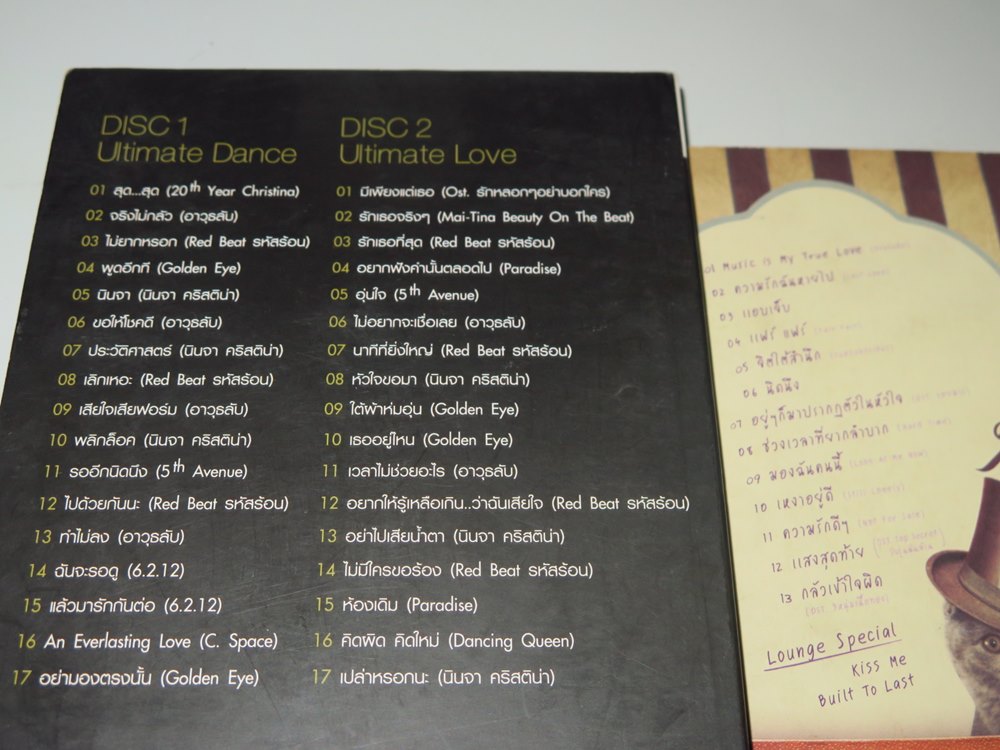 DISC 1
Ultimate Dance
01 สุด...สุด (20th Year Christina)
02 จริงไม่กลัว (อาวุธลับ)
03 ไม่ยากหรอก (Red Beat รหัสร้อน)
04 พูดอีกที (Golden Eye)
05 นินจา (นินจา คริสติน่า)
06 ขอให้โชคดี (อาวุธลับ)
07 ประวัติศาสตร์ (นินจา คริสติน่า)
08 เลิกเหอะ (Red Beat รหัสร้อน)
09 เสียใจเสียฟอร์ม (อาวุธลับ)
10 พลิกล็อค (นินจา คริสติน่า)
11 รออีกนิดนึง (5th Avenue)
12 ไปด้วยกันนะ (Red Beat รหัสร้อน)
13 ทำไม่ลง (อาวุธลับ)
14 ฉันจะรอดู (6.2.12)
15 แล้วมารักกันต่อ (6.2.12)
16 An Everlasting Love (C. Space)
17 อย่ามองตรงนั้น (Golden Eye)
DISC 2
Ultimate Love
01 มีเพียงแต่เธอ (Ost. รักหลอกๆอย่าบอกใคร)
02 รักเธอจริงๆ (Mai-Tina Beauty On The Beat)
03 รักเธอที่สุด (Red Beat รหัสร้อน)
04 อยากฟังคำนั้นตลอดไป (Paradise)
05 อุ่นใจ (5th Avenue)
06 ไม่อยากจะเชื่อเลย (อาวุธลับ)
07 นาทีที่ยิ่งใหญ่ (Red Beat รหัสร้อน)
08 หัวใจขอมา (นินจา คริสติน่า)
09 ใต้ผ้าห่มอุ่น (Golden Eye)
10 เธออยู่ไหน (Golden Eye)
11 เวลาไม่ช่วยอะไร (อาวุธลับ)
12 อยากให้รู้เหลือเกิน..ว่าฉันเสียใจ (Red Beat รหัสร้อน)
13 อย่าไปเสียน้ำตา (นินจา คริสติน่า)
14 ไม่มีใครขอร้อง (Red Beat รหัสร้อน)
15 ห้องเดิม (Paradise)
16 คิดผิด คิดใหม่ (Dancing Queen)
17 เปล่าหรอกนะ (นินจา คริสติน่า)
01 Music is My True Love
02 ความรักฉันหายไป
03 แอบเจ็บ
04 แฟร์ แฟร์
05 จิตใต้สำนึก
06 นิดนึง
07 อยู่ๆก็มาปรากฏตัวในหัวใจ
08 ช่วงเวลาที่ยากลำบาก (Hard Time)
09 มองฉันคนนี้ (Look At Me Now)
10 เหงาอยู่ดี (Still Lonely)
11 ความรักดีๆ
12 แสงสุดท้าย
13 กลัวเข้าใจผิด
Lounge Special
Kiss Me
Built To Last